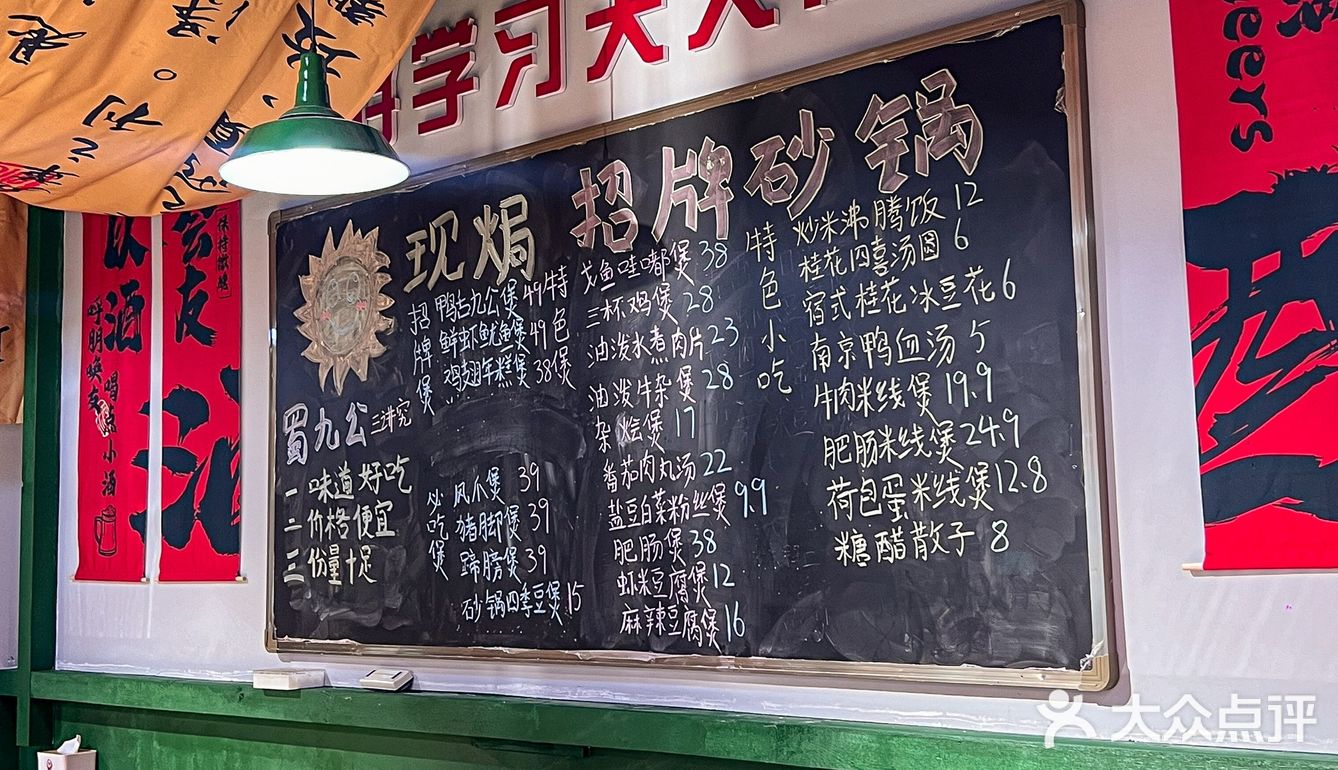 学习
现焗 招牌砂锅
招牌煲
鸭古九公煲 49
鲜虾鱿鱼煲 49
鸡翅年糕煲 38
蜀九公三讲究
一 味道好吃
二 价格便宜
三 份量十足
必吃煲
凤爪煲 39
猪脚煲 39
蹄膀煲 39
砂锅四季豆煲 15
特色煲
戈鱼哇嘟煲 38
三杯鸡煲 28
油泼水煮肉片 23
油泼牛杂煲 28
杂烩煲 17
番茄肉丸汤 22
盐豆白菜粉丝煲 9.9
肥肠煲 38
虾米豆腐煲 12
麻辣豆腐煲 16
特色小吃
炒米沸腾饭 12
桂花四喜汤圆 6
宿式桂花冰豆花 6
南京鸭血汤 5
牛肉米线煲 19.9
肥肠米线煲 24.9
荷包蛋米线煲 12.8
糖醋散子 8
以酒
呼朋唤友
喝点小酒
会友
酒
eers
大众点评